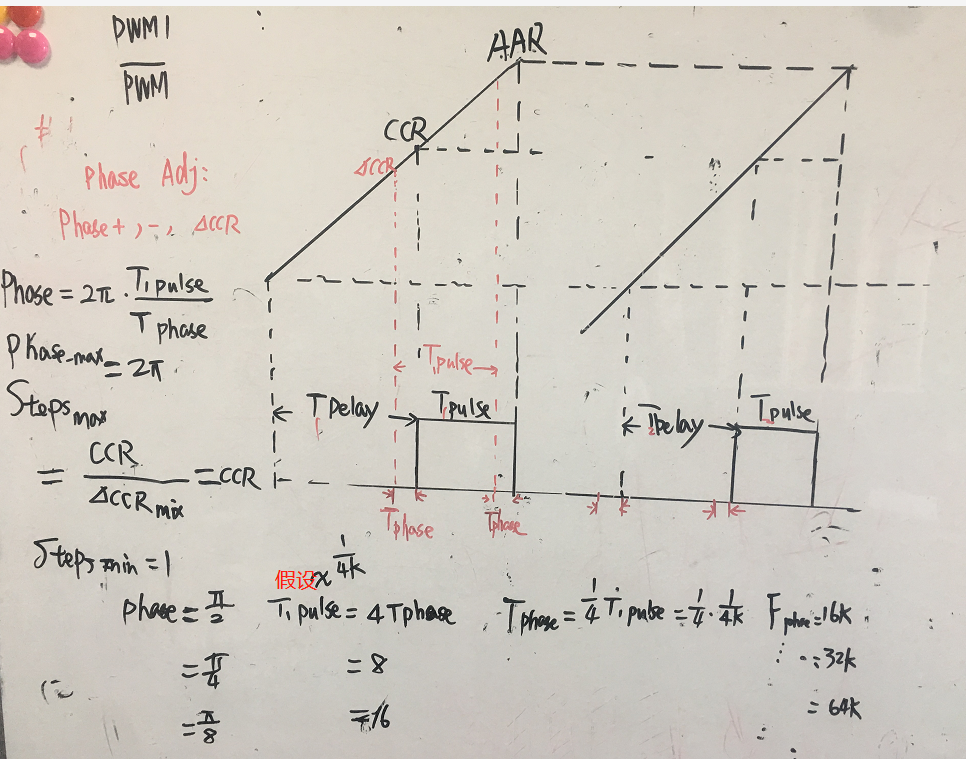 PWM1
PWM
AAR
CCR
ΔCCR
Phase Adj:
Phase+, -, ΔCCR
Phase = 2π · T1pulse / Tphase
Phase_max = 2π
Steps max
= CCR / ΔCCR mix = CCR
T1pulse
T1 Delay
T1pulse
T2Delay
T2pulse
Tphase
Tphase
Steps min = 1
假设 1/4k
phase = π/2
T1 pulse = 4 Tphase
Tphase = 1/4 T1 pulse = 1/4 · 1/4k
Fphase = 16k
= π/4
= 8
= 32k
= π/8
= 16
= 64k